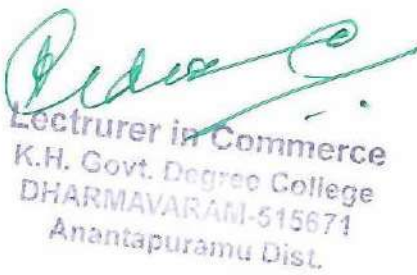 Lectrurer in Commerce
K.H. Govt. Degree College
DHARMAVARAM-515671
Anantapuramu Dist.